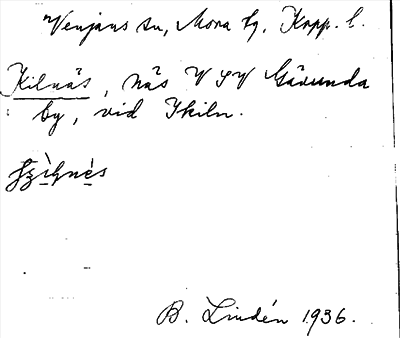 Venjans sn, Mora tg, Kopp. l.
Kilnäs, näs V SV Gävunda
by, vid Ikiln.
B. Lindén 1936.